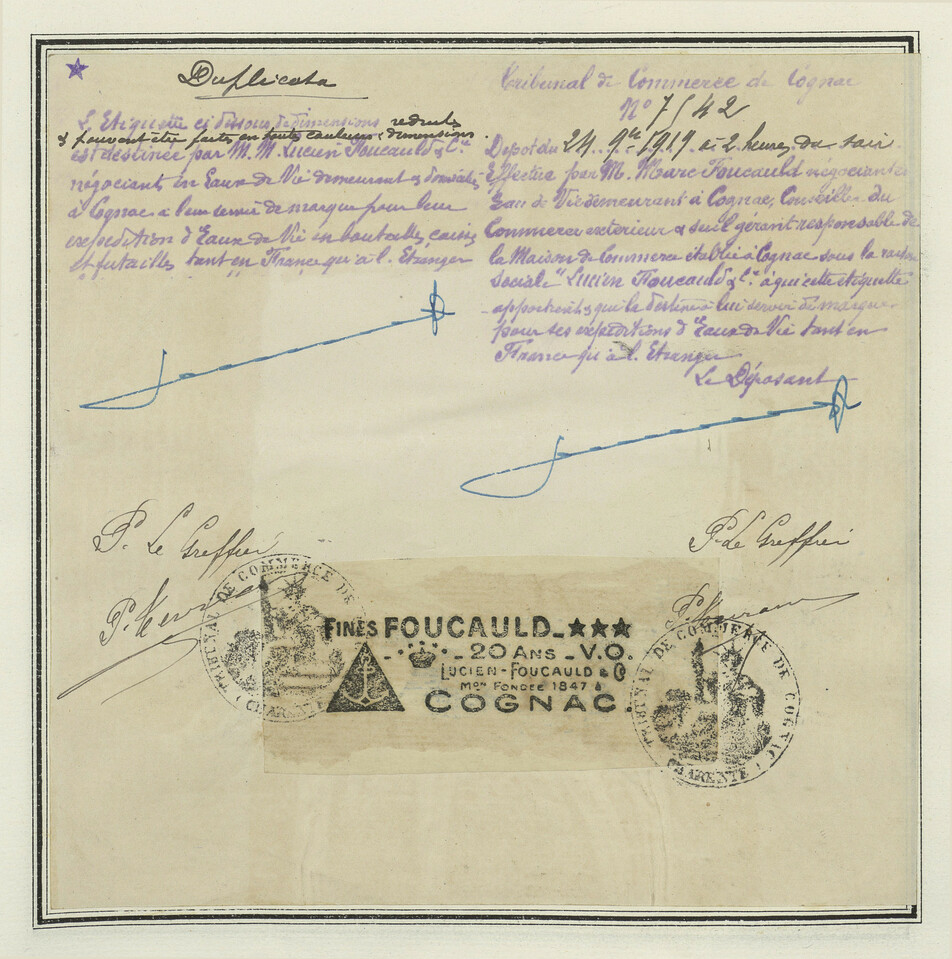 Duplicata
L'Etiquette ci dessous, de dimensions reduits
& pouvant être faite en toutes couleurs & dimensions.
est destinée par M.M. Lucien Foucauld & Cie
négociants en Eaux de Vie demeurant & domiciliés
à Cognac à leur servir de marque pour leur
expedition d'Eaux de Vie en bouteilles, caisses
et futailles tant en France qu'à l'Etranger
P. Le Greffier
Tribunal de Commerce de Cognac
No 7542
Dépot du 24 9bre 1919 à 2 heures du soir
Effectué par M. Marc Foucauld négociant en
Eau de Vie demeurant à Cognac, Conseiller du
Commerce extérieur & seul gérant responsable de
la Maison de Commerce établie à Cognac sous la raison
sociale "Lucien Foucauld & Cie à qui cette étiquette
appartient & qui la destine à lui servir de marque
pour ses expeditions d'Eaux de Vie tant en
France qu'à l'Etranger
Le Déposant
P. Le Greffier
TRIBUNAL DE COMMERCE DE
CHARENTE
FINES FOUCAULD_★★★
20 ANS_V.O.
LUCIEN-FOUCAULD & Co
Mon FONDÉE 1847 à
COGNAC.
TRIBUNAL DE COMMERCE DE COGNAC
CHARENTE